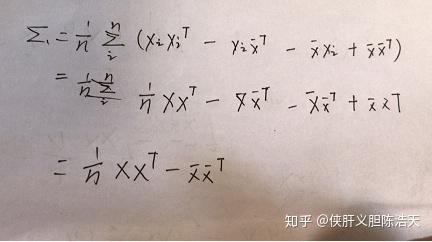 Σ₁ = 1/n Σᵢⁿ (xᵢxᵢᵀ - xᵢx̄ᵀ - x̄xᵢ + x̄x̄ᵀ)
= 1/n XXᵀ - x̄x̄ᵀ - x̄x̄ᵀ + x̄x̄ᵀ
= 1/n XXᵀ - x̄x̄ᵀ
知乎 @侠肝义胆陈浩天